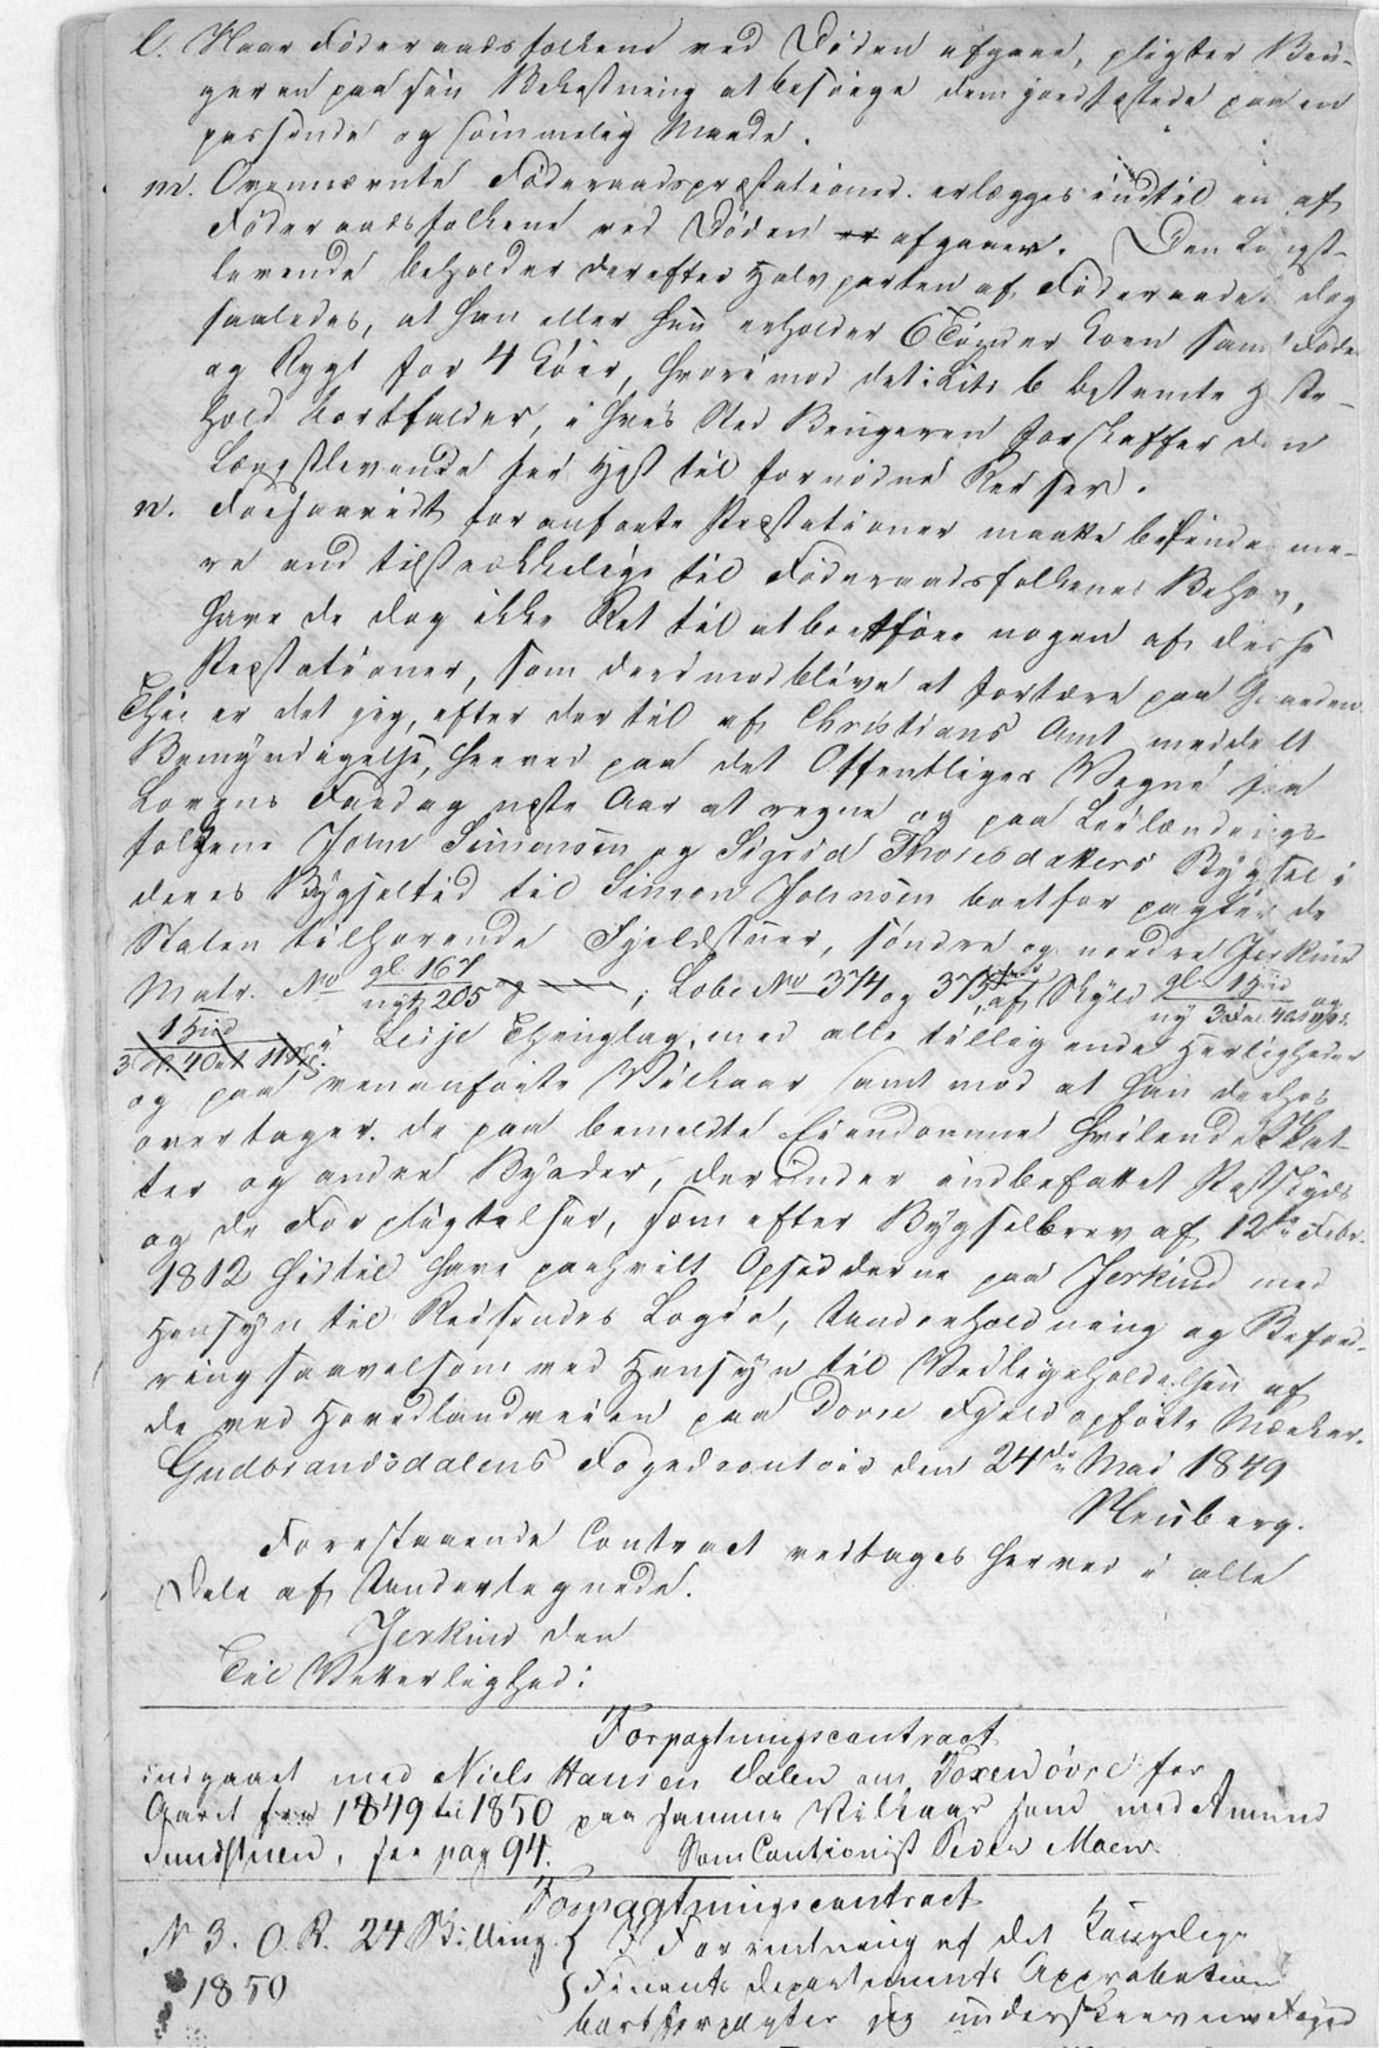 l. Naar Föderaadsfolkene ved Döden afgaae, pligter Bru-
geren paa sin Bekostning at besörge dem jordfæstede paa en
passende og sömmelig Maade.
m. Ovennævnte Föderaadspræstationer erlægges indtil en af
Föderaadsfolkene ved Döden afgaaer. Den Længst-
levende beholder derefter Halvparten af Föderaadet dog
saaledes, at han eller hun erholder 6 Tönder Korn samt Föde
og Rygt for 4 Köer, hvorimod det i Litr b bestemte Heste-
hold bortfalder, i hvis Sted Brugeren forskaffer den
Længstlevende fri Hest til fornödne Reiser.
n. Forsaavidt foranförte Præstationer maatte befindes me-
re end tilstrækkelige til Föderaadsfolkenes Behov,
have de dog ikke Ret til at bortföre nogen af disse
Præstationer, som derimod blive at fortære paa Gaarden.
Thi er det jeg, efter dertil af Christians Amt meddelt
Bemyndigelse, herved paa det Offentliges Vegne fra
Lovens Faredag næste Aar at regne og paa Leilændings-
folkene John Simensen og Sigrid Thoresdatters Bygsel i
deres Bygseltid til Simen Johnsen bortforpagter de
Staten tilhörende Fjeldstuer, söndre og nordre Jerkind
Matr. No gl. 167 nyt 205; Löbe No 374 og 375, af Skyld gl. 1 Hud ny 3 Dal. 4 Ort og
1 Hud 3 Dl. 4 Ort 11 Sk. i Lesje Thinglag, med alle tilliggende Herligheder
og paa ovenanförte Vilkaar samt mod at han derhos
overtager de paa bemeldte Eiendomme hvilende Skat-
ter og andre Byrder, derunder indbefattet Postskyds
og de Forpligtelser, som efter Bygselbrev af 12te Febr.
1812 hidtil have paahvilt Opsidderne paa Jerkind med
Hensyn til Reisendes Logie, Underholdning og Beford-
ring saavelsom ved Hensyn til Vedligeholdelsen af
de ved Hovedlandveien paa Dovre Fjeld opförte Mærker.
Gudbrandsdalens Fogedcontoir den 24de Mai 1849
Neuberg.
Forestaaende Contract vedtages herved i alle
Dele af Undertegnede.
Jerkind den
Til Vitterlighed:
Forpagtningscontract
indgaaet med Niels Hansen Dalen om Toxendövre for
Aaret fra 1849 til 1850 paa samme Vilkaar som med Amund
se pag 94. Som Cautionist Peder Moen.
Forpagtningscontract
N 3. O. R. 24 Skilling. } I Forventning af det Kongelige
1850 } Finants Departements Approbation
bortforpagter jeg underskrevne Foged